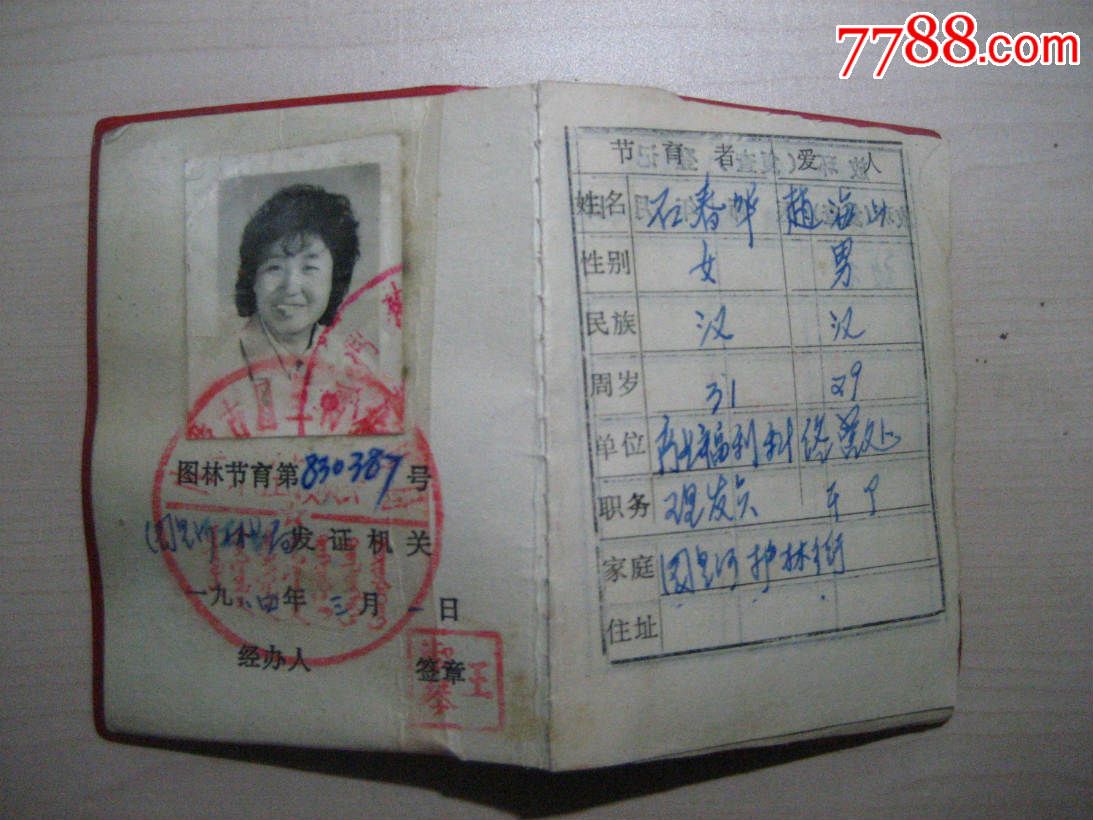 7788.com
图林节育第830387号
发证机关
一九八四年三月一日
经办人 签章
王
节育者 爱人
姓名 石春华 赵海山
性别 女 男
民族 汉 汉
周岁 31 29
单位 福利
职务 理发员
家庭 图里河护林街
住址